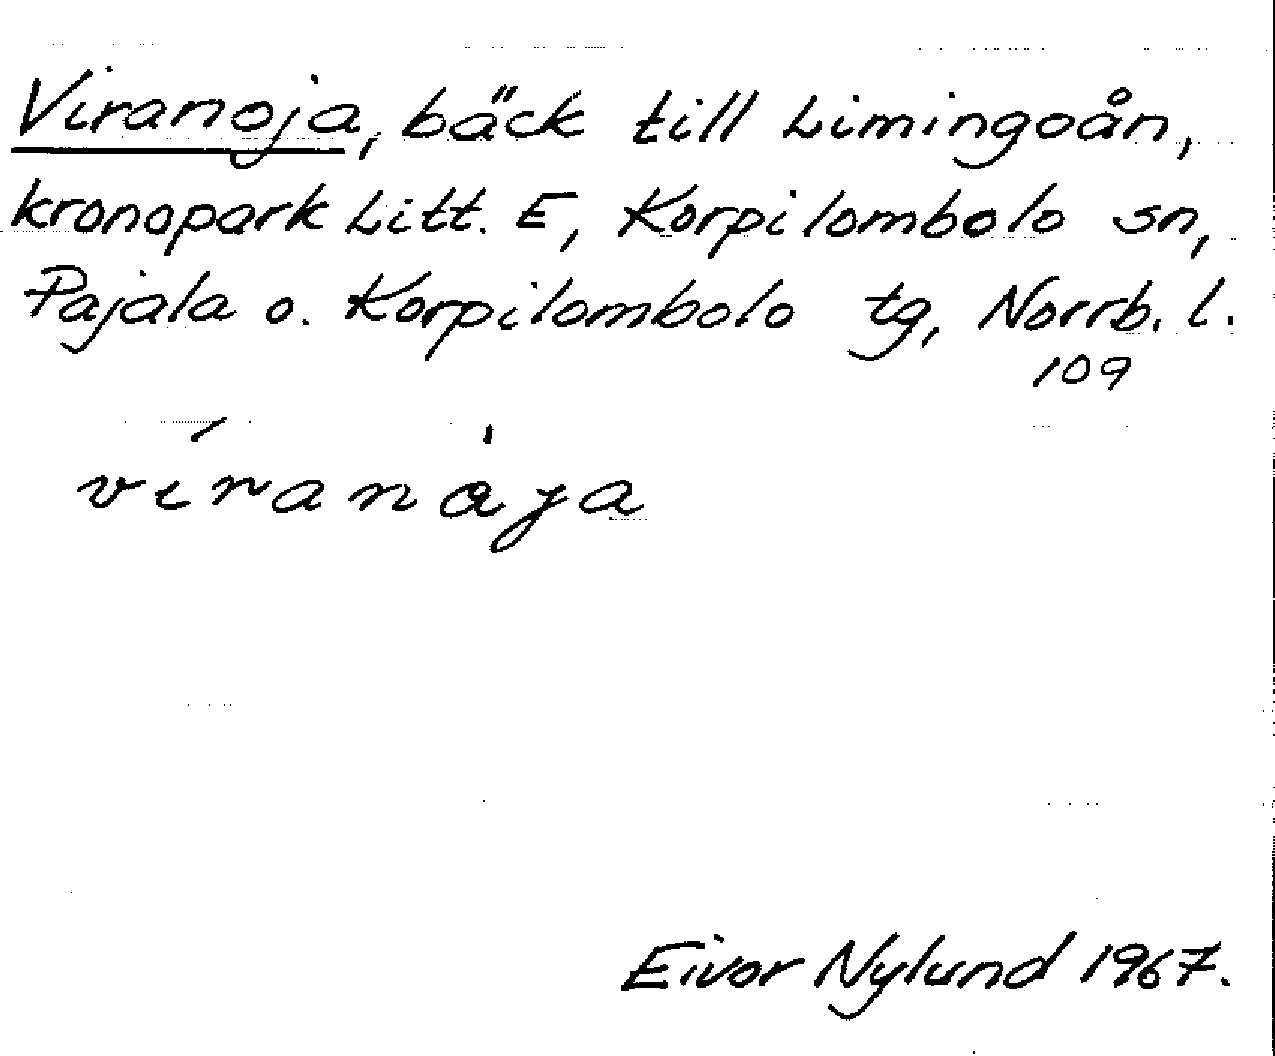 Viranoja, bäck till Limingoån,
kronopark Litt. E, Korpilombolo sn,
Pajala o. Korpilombolo tg, Norrb. l.
109
víranȧja
Eivor Nylund 1967.